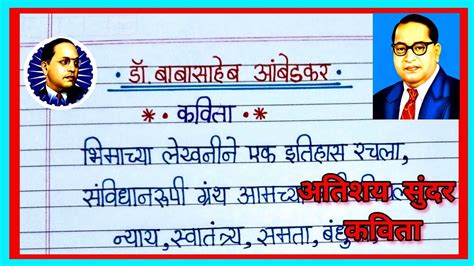 डॉ. बाबासाहेब आंबेडकर
कविता
भिमाच्या लेखनीने एक इतिहास रचला,
संविधानरूपी ग्रंथ
न्याय, स्वातंत्र्य, समता,
अतिशय सुंदर
कविता